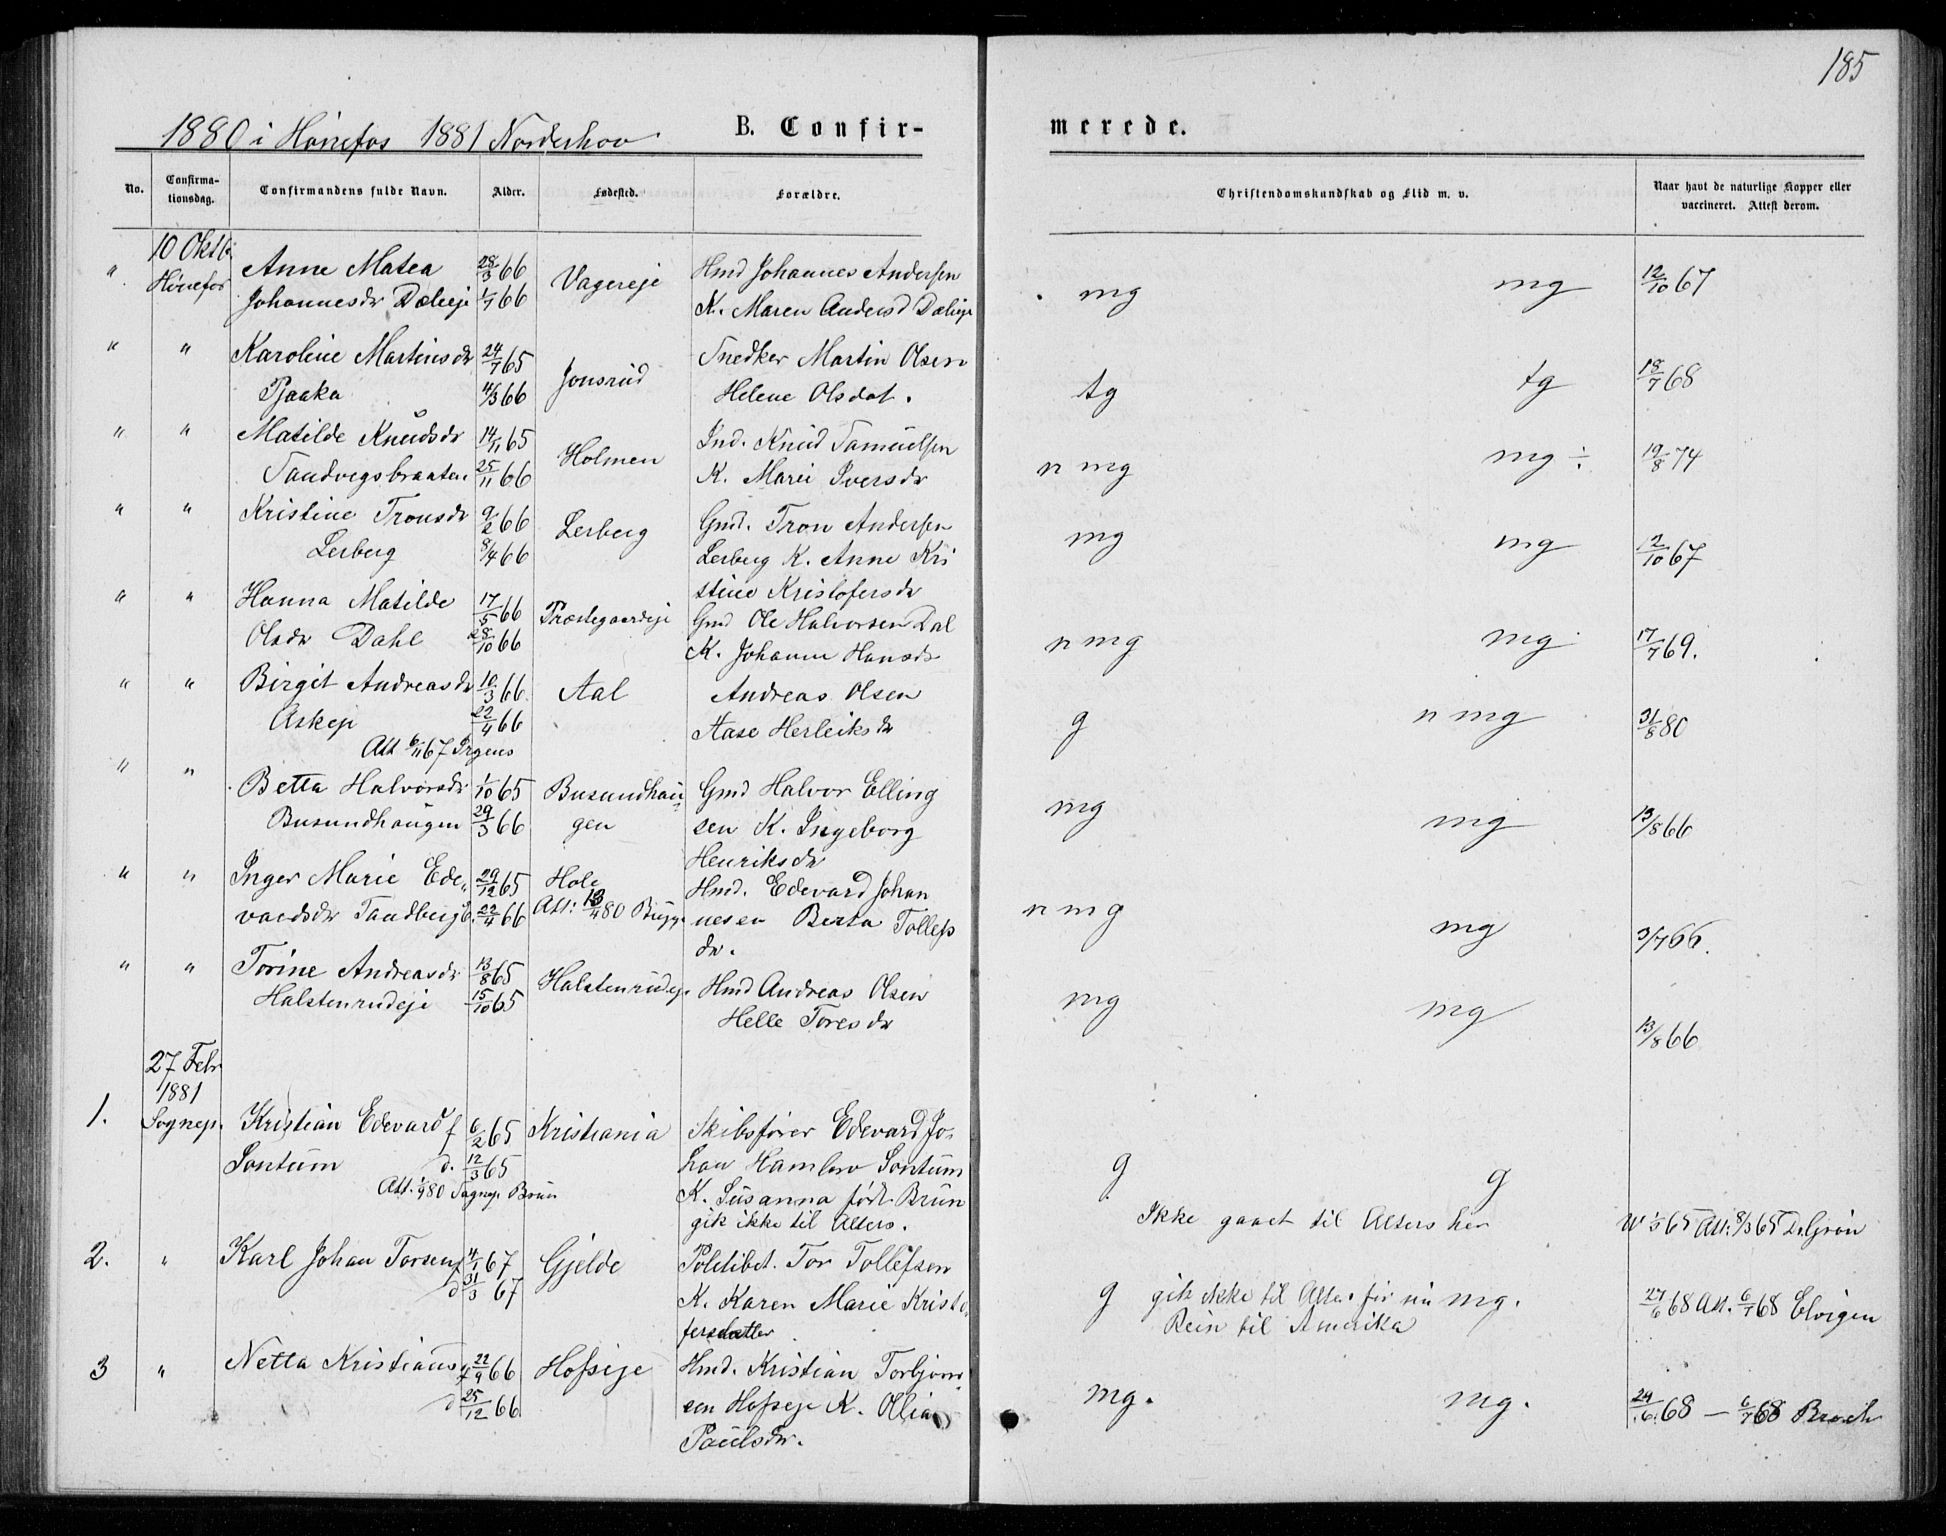 185
1880 i Hønefos 1881 Norderhov
B. Confir-
merede.
No.
Confirma-
tionsdag.
Confirmandens fulde Navn.
Alder.
Fødested.
Forældre.
Christendomskundskab og Flid m. v.
Naar havt de naturlige Kopper eller
vaccineret. Attest derom.
" 10 Oktb. Anne Matea 28/3 66 Vagereje Hmd Johannes Andersen mg mg 12/10 67
Hønefos Johannesdr Dæleje 1/7 66 K. Maren Andersd Dæleje
" " Karoline Martinsdr 24/7 65 Jonsrud Snedker Martin Olsen tg tg 18/7 68
Pjaaka 4/3 66 Helene Olsdat.
" " Matilde Knudsdr 14/11 65 Holmen Ind. Knud Samuelsen n mg mg ÷ 19/8 74
Sandvegsbraaten 25/11 66 K. Marie Iversdr
" " Kristine Tronsdr 9/2 66 Lerberg Gmd. Tron Andersen mg mg 12/10 67
Lerberg 8/4 66 Lerberg K. Anne Kri
stine Kristofersdr
" " Hanna Matilde 17/5 66 Præstegaardeje Gmd Ole Halvorsen Dal n mg mg 17/7 69.
Olsdr Dahl 28/10 66 K. Johanne Hansdr
" " Birgit Andreasdr 10/3 66 Aal Andreas Olsen g n mg 31/8 80
Askeje 22/4 66 Aase Herleiksdr
Att 6/11 67 Irgens
" " Betta Halvorsdr 1/10 65 Busundhau- Gmd Halvor Elling mg mg 13/8 66
Busundhaugen 29/3 66 gen sen K. Ingeborg
Henriksdr
" " Inger Marie Ede- 29/12 65 Hole Hmd. Edevard Johan n mg mg 3/7 66.
vardsdr Tandberg 22/4 66 Att: 13/4 80 Bugge nesen Berta Tollefs
dr.
" " Torine Andreasdr 13/8 65 Halstenrudeje Hmd Andreas Olsen mg mg 13/8 66
Halstenrudeje 15/10 65 Helle Toresdr
27 Febr
1881
1. Sognep. Kristian Edevard f 6/2 65 Kristiania Skibsfører Edevard Jo-
Sontum d. 12/3 65 han Sontum g g
Att. 1/9 80 Sognep Brun K. Susanna født Brun
gik ikke til Alters. Ikke gaaet til Alters her 1/3 65 Att: 8/3 65 Dr Grøn
2. " Karl Johan Torsen f 4/1 67 Gjelde Politibet. Tor Tollefsen
d 31/3 67 K. Karen Marie Kristo g gik ikke til Alter før sin mg. 27/6 68 Att. 6/7 68 Elvigen
fersdatter Rein til Amerika
3 " Netta Kristians f 22/9 66 Hofseje Hmd. Kristian Torbjørn-
d 25/12 66 sen Hofseje K. Olia mg. mg. 24/6 68 — 6/7 68 Broch
Paulsdr.